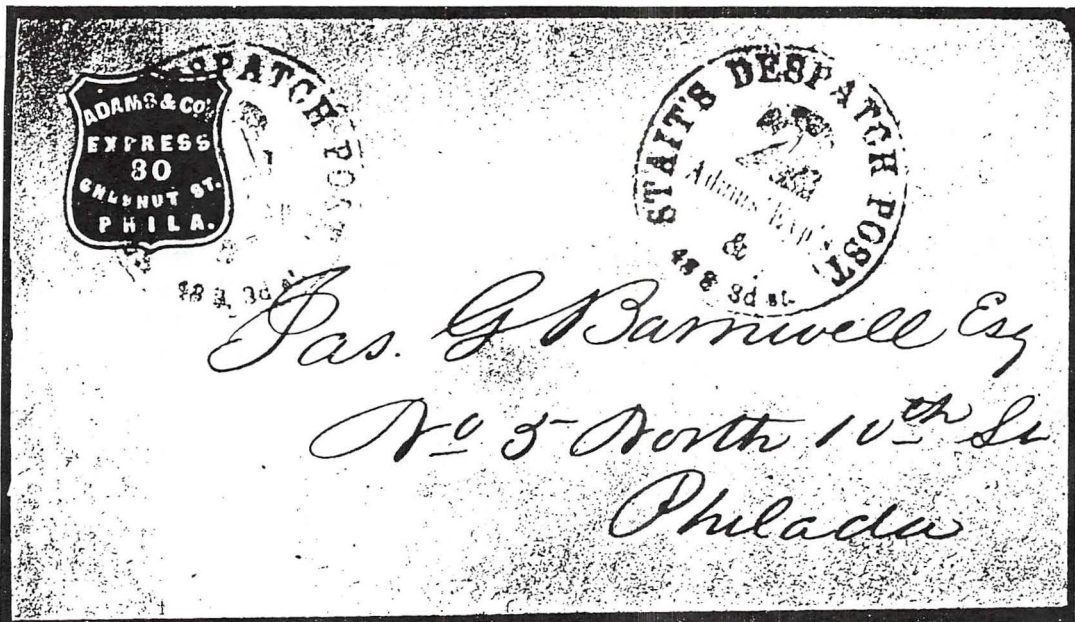 ADAMS & CO'S
EXPRESS
80
CHESNUT ST.
PHILA.
DESPATCH POST
48 S. 3d st.
STAIT'S DESPATCH POST,
Adams' Exp's
&
48 S 3d st.
Jas. G Barnwell Esq
No 5 North 10th St
Philada